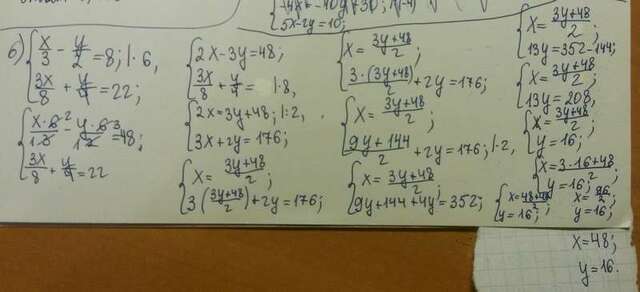 -4x - 40y + 30; /(-4)
5x-2y=10;
б) x/3 - y/2 = 8; |·6,
3x/8 + y/4 = 22;
x·6²/1 3 - y·6 3/1 2 = 48;
3x/8 + y/4 = 22
2x-3y=48;
3x/8 + y/4 = |·8,
2x=3y+48; |:2,
3x+2y=176;
x= 3y+48/2;
3(3y+48/2)+2y=176;
x= 3y+48/2;
3·(3y+48)/2 +2y=176;
x= 3y+48/2;
9y+144/2 +2y=176; |·2,
x= 3y+48/2;
9y+144+4y=352;
x= 3y+48/2;
13y=352-144;
x= 3y+48/2;
13y=208,
x= 3y+48/2;
y=16;
x= 3·16+48/2;
y=16;
x= 48+48/2;
y=16;
x= 96/2;
y=16;
x=48;
y=16.